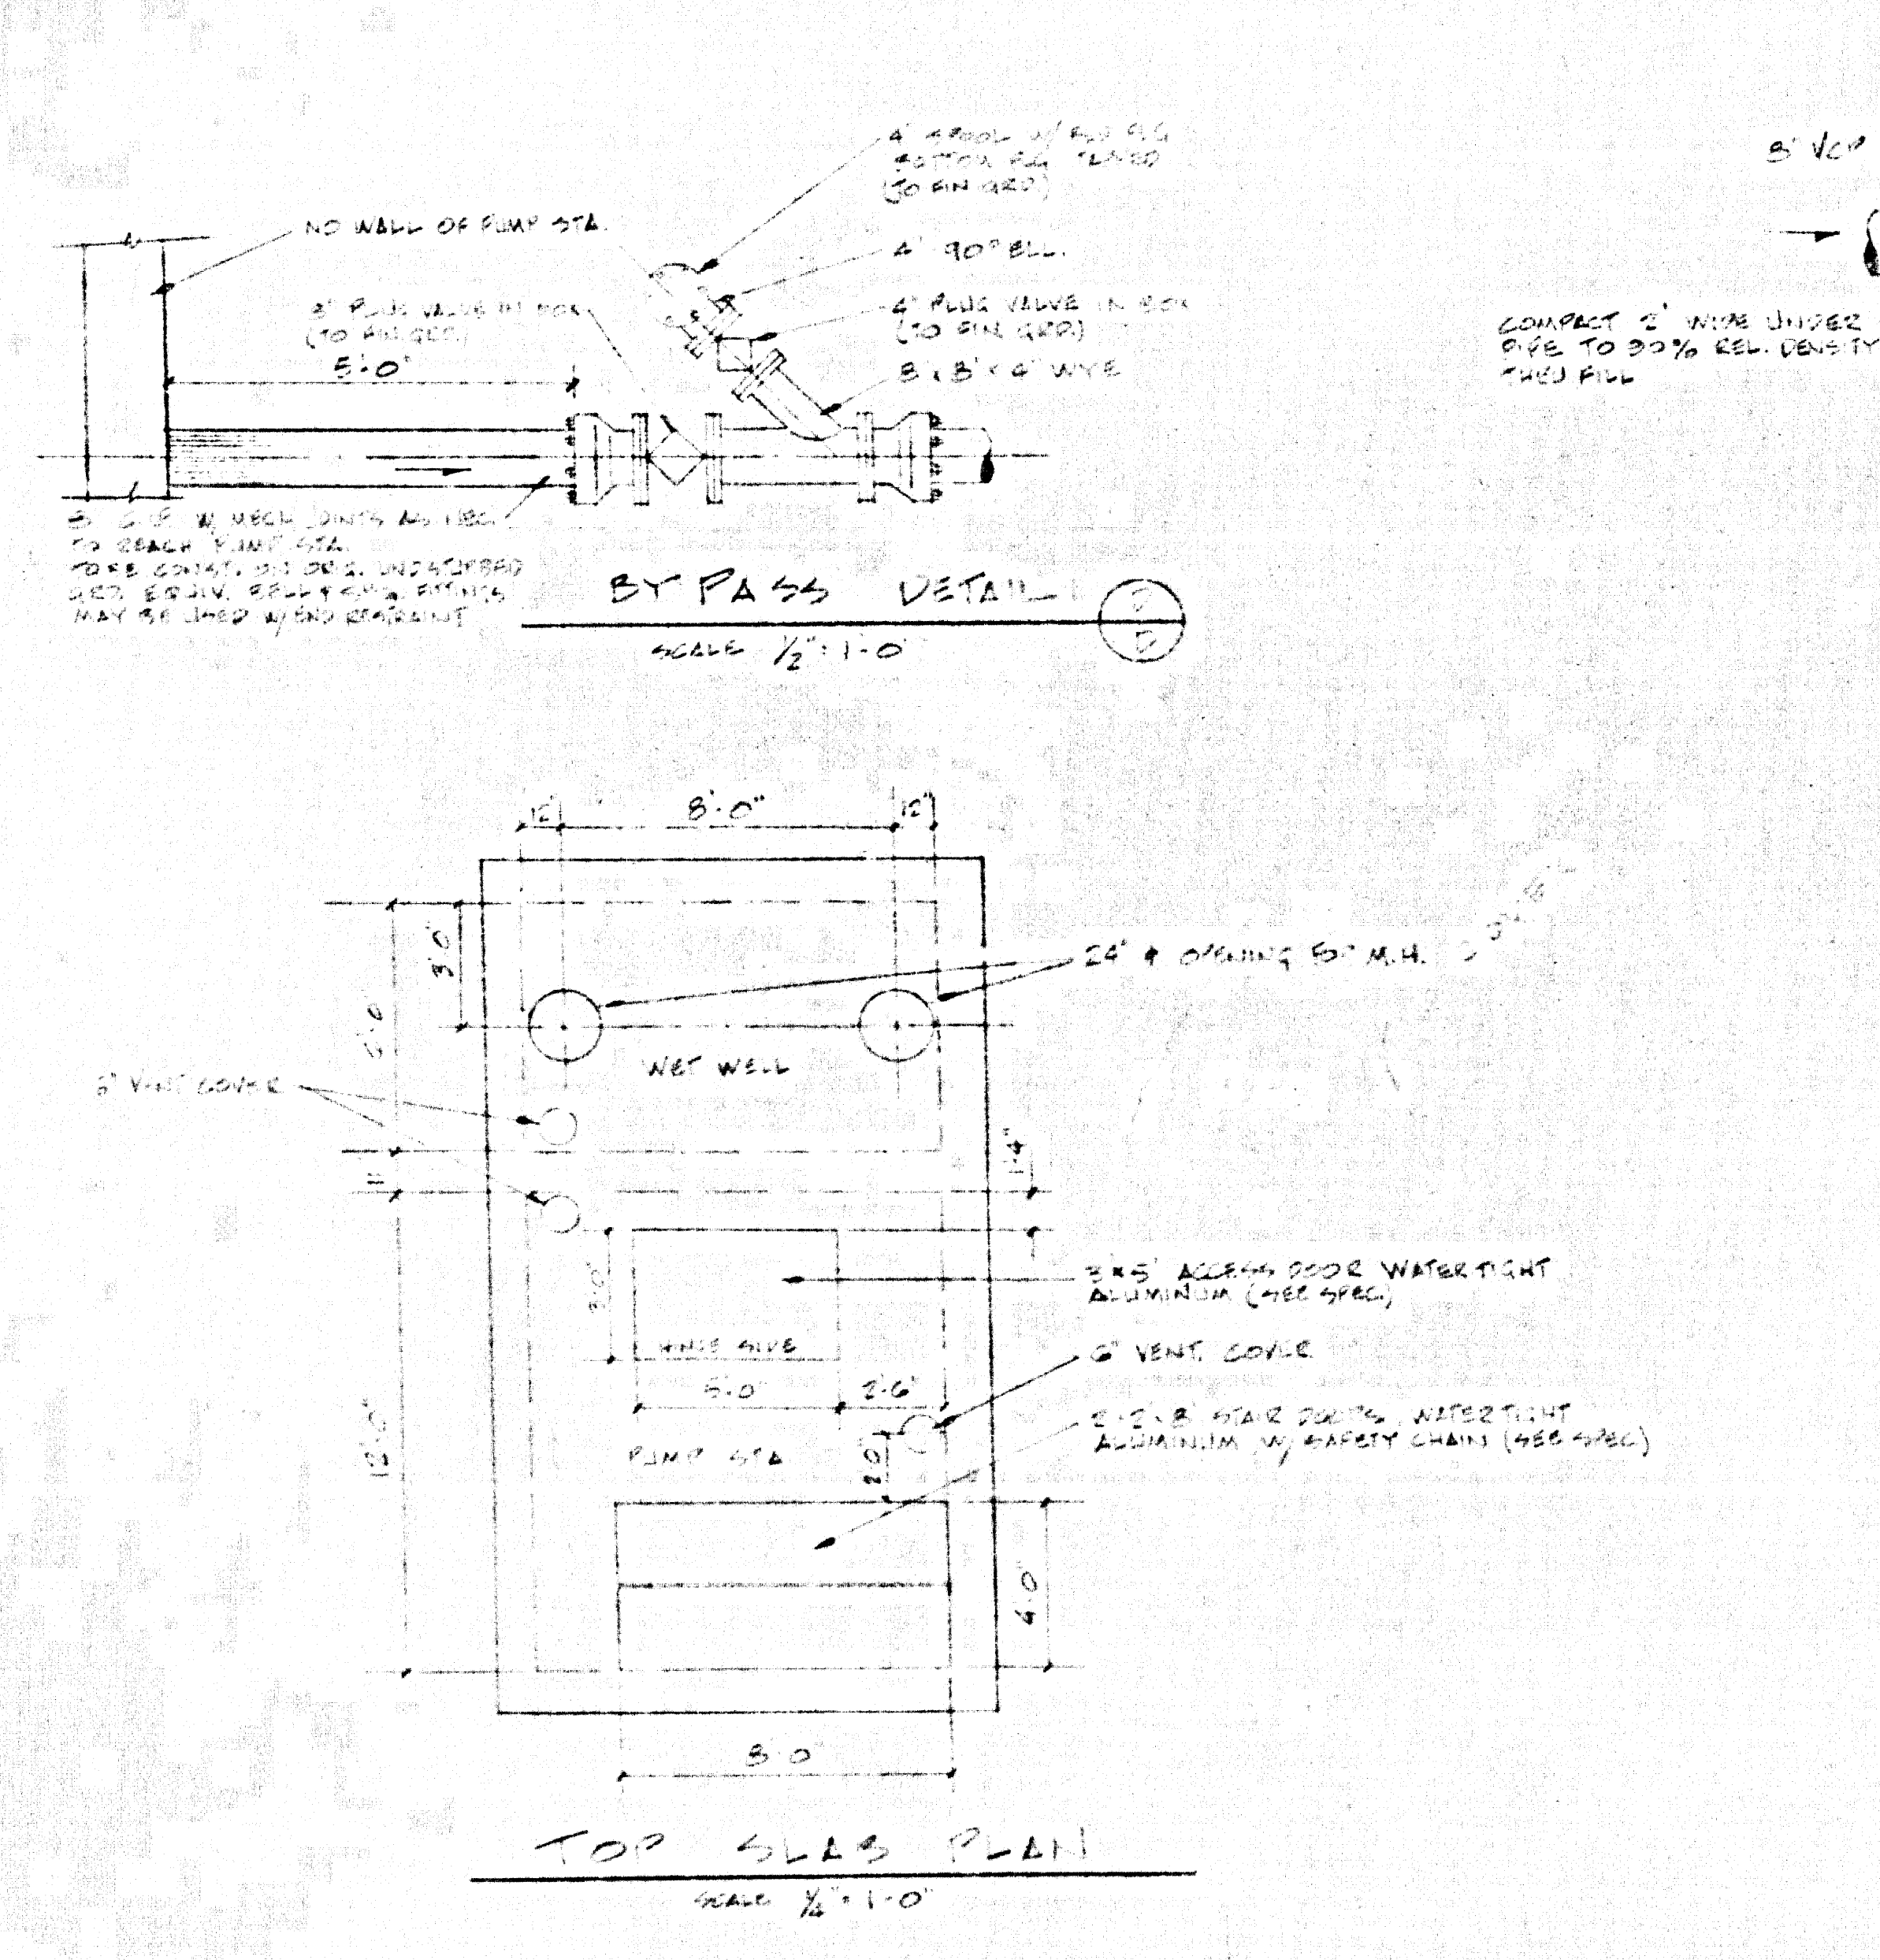 4" SPOOL W/ BLD FLG
BOTTOM FLG TAPPED
(TO FIN GRD.)
NO WALL OF PUMP STA.
4" 90° ELL.
8" PLUG VALVE IN BOX
(TO FIN GRD.)
4" PLUG VALVE IN BOX
(TO FIN GRD.)
8 x 8 x 4" WYE
5'-0"
W/ MECH JOINTS AS NEC.
TO REACH PUMP STA.
TO BE CONST. ON ORIG. UNDISTURBED
GRD. EQUIV. BELL & FITTINGS
MAY BE USED W/ END RESTRAINT
BY PASS DETAIL
SCALE 1/2" : 1'-0"
8" VCP
COMPACT 2' WIDE UNDER
PIPE TO 90% REL. DENSITY
THEN FILL
12"
8'-0"
12"
3'-0"
24" φ OPENING FOR M.H.
WET WELL
6" VENT COVER
11"
1'-4"
3'-0"
3'x5' ACCESS DOOR WATERTIGHT
ALUMINUM (SEE SPEC.)
HINGE SIDE
6" VENT. COVER
5'-0"
2'-6"
2-2'x8' STAIR DOORS, WATERTIGHT
ALUMINUM W/ SAFETY CHAIN (SEE SPEC)
PUMP STA
2'-0"
12'-0"
4'-0"
8'-0"
TOP SLAB PLAN
SCALE 1/4" = 1'-0"